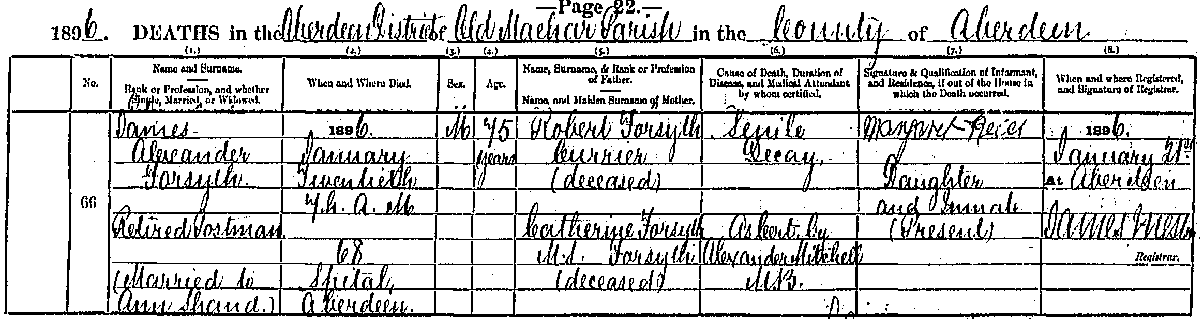 —Page 22.—
1896. DEATHS in the Aberdeen District of Old Machar Parish in the County of Aberdeen
(1.) (2.) (3.) (4.) (5.) (6.) (7.) (8.)
No.
Name and Surname.
Rank or Profession, and whether
Single, Married, or Widowed.
When and Where Died.
Sex.
Age.
Name, Surname, & Rank or Profession
of Father.
Name, and Maiden Surname of Mother.
Cause of Death, Duration of
Disease, and Medical Attendant
by whom certified.
Signature & Qualification of Informant,
and Residence, if out of the House in
which the Death occurred.
When and where Registered,
and Signature of Registrar.
66
James
Alexander
Forsyth
Retired Postman
(Married to
Ann Shand.)
1896.
January
Twentieth
7h. A.M
68
Spital,
Aberdeen.
M
75
years
Robert Forsyth
Currier
(deceased)
Catherine Forsyth
M.S. Forsyth
(deceased)
Senile
Decay,
As cert. by
Alexander Mitchell
M.B.
Margaret
Daughter
and Inmate
(Present)
1896.
January 21st
at Aberdeen
James
Registrar.